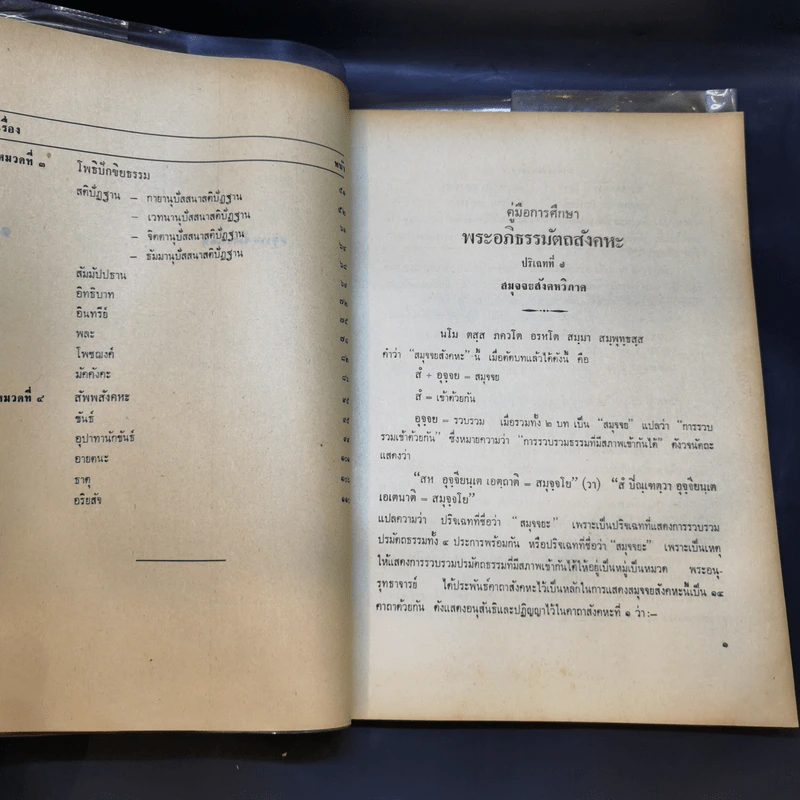 เรื่อง
หน้า
หมวดที่ ๓ โพธิปักขิยธรรม
สติปัฏฐาน – กายานุปัสสนาสติปัฏฐาน
– เวทนานุปัสสนาสติปัฏฐาน
– จิตตานุปัสสนาสติปัฏฐาน
– ธัมมานุปัสสนาสติปัฏฐาน
สัมมัปปธาน
อิทธิบาท
อินทรีย์
พละ
โพชฌงค์
มัคคังคะ
หมวดที่ ๔ สัพพสังคหะ
ขันธ์
อุปาทานักขันธ์
อายตนะ
ธาตุ
อริยสัจ
คู่มือการศึกษา
พระอภิธรรมัตถสังคหะ
ปริเฉทที่ ๗
สมุจจยสังคหวิภาค
นโม ตสฺส ภควโต อรหโต สมฺมา สมฺพุทฺธสฺส
คำว่า "สมุจจยสังคหะ" นี้ เมื่อตัดบทแล้วได้ดังนี้ คือ
สํ + อุจฺจย = สมุจฺจย
สํ = เข้าด้วยกัน
อุจฺจย = รวบรวม เมื่อรวมทั้ง ๒ บท เป็น "สมุจฺจย" แปลว่า "การรวบ
รวมเข้าด้วยกัน" ซึ่งหมายความว่า "การรวบรวมธรรมที่มีสภาพเข้ากันได้" ดังวจนัตถะ
แสดงว่า
"สห อุจฺจียนฺเต เอตฺถาติ = สมุจฺจโย" (วา) "สํ ปิณฺเฑตฺวา อุจฺจียนฺเต
เอเตนาติ = สมุจฺจโย"
แปลความว่า ปริจเฉทที่ชื่อว่า "สมุจจยะ" เพราะเป็นปริจเฉทที่แสดงการรวบรวม
ปรมัตถธรรมทั้ง ๔ ประการพร้อมกัน หรือปริจเฉทที่ชื่อว่า "สมุจจยะ" เพราะเป็นเหตุ
ให้แสดงการรวบรวมปรมัตถธรรมที่มีสภาพเข้ากันได้ให้อยู่เป็นหมู่เป็นหมวด พระอนุ-
รุทธาจารย์ ได้ประพันธ์คาถาสังคหะไว้เป็นหลักในการแสดงสมุจจยสังคหะนี้เป็น ๑๔
คาถาด้วยกัน ดังแสดงอนุสันธิและปฏิญญาไว้ในคาถาสังคหะที่ ๑ ว่า:–
๑